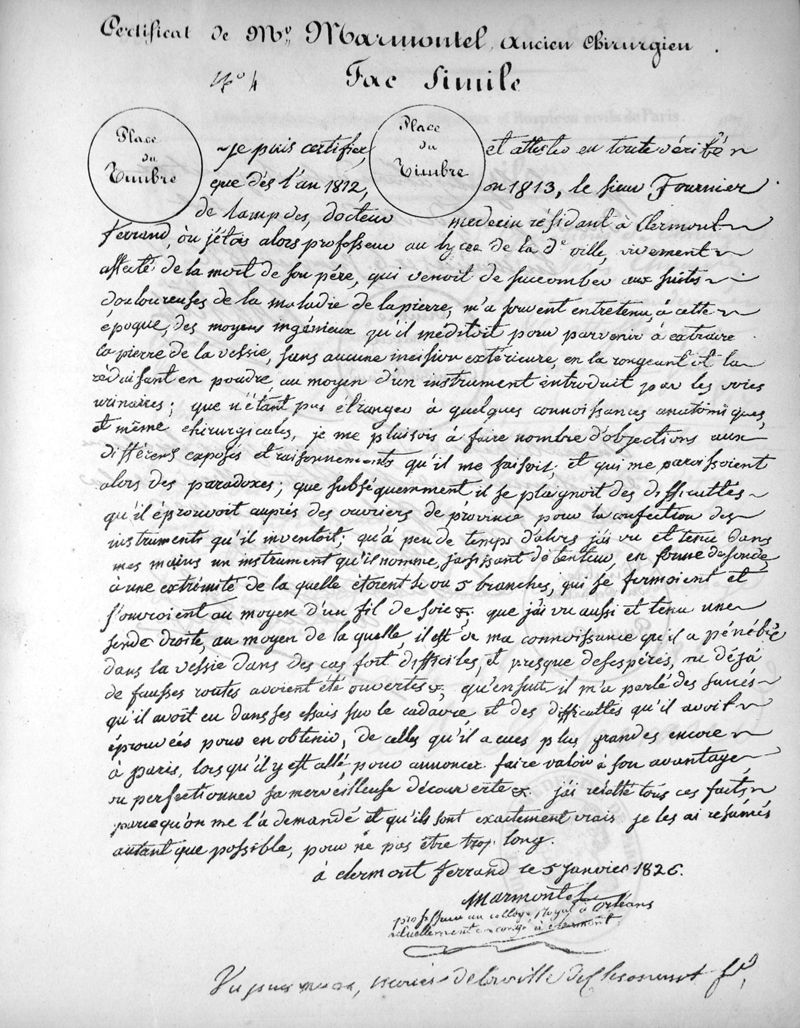 Certificat de Mr. Marmontel, ancien Chirurgien.
No. 4 Fac Simile
Place du Timbre
Place du Timbre
je puis certifier, et attester en toute vérité
que dès l'an 1812, ou 1813, le sieur Fournier
de Lempdes, docteur medecin résidant à Clermont
ferrand, où j'étois alors professeur au lycée de la de. ville, vivement
affecté de la mort de son père, qui venoit de succomber aux suites
douloureuses de la maladie de la pierre, m'a souvent entretenu, à cette
époque, des moyens ingénieux qu'il méditoit pour parvenir à extraire
la pierre de la vessie, sans aucune incision extérieure, en la rongeant et la
réduisant en poudre, au moyen d'un instrument introduit par les voies
urinaires; que n'étant pas étranger à quelques connoissances anatomiques,
et même chirurgicales, je me plaisois à faire nombre d'objections aux
différens exposés et raisonnements qu'il me faisoit, et qui me paroissoient
alors des paradoxes; que subséquemment il se plaignoit des difficultés
qu'il éprouvoit auprès des ouvriers de province pour la confection des
instruments qu'il inventoit; qu'à peu de temps d'alors j'ai vu et tenu dans
mes mains un instrument qu'il nomme, en forme de sonde,
à une extrémité de la quelle étoient 4 ou 5 branches, qui se fermoient et
s'ouvroient au moyen d'un fil de soie &. que j'ai vu aussi et tenu une
sonde droite, au moyen de la quelle, il est de ma connoissance qu'il a pénétré
dans la vessie dans des cas fort difficiles, et presque désespérés, ou déjà
de fausses routes avoient été ouvertes &. qu'ensuite il m'a parlé des succès
qu'il avoit eu dans ses essais sur le cadavre et des difficultés qu'il avoit
éprouvées pour en obtenir, de celles qu'il a eues plus grandes encore
à paris, lorsqu'il y est allé, pour annoncer faire valoir à son avantage
ou perfectionner sa merveilleuse découverte &. j'ai relaté tous ces faits
parce qu'on me l'a demandé et qu'ils sont exactement vrais je les ai résumés
autant que possible, pour ne pas être trop long.
à clermont ferrand le 5 janvier 1826.
Marmontel
professeur au collège royal à Orléans
actuellement en congé à clermont.
Vu par nous, maire de la ville de Clermont fd.